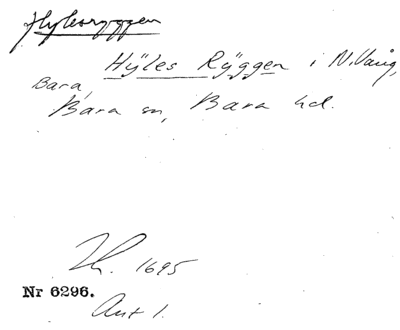 Hylesryggen
Hÿles Rÿggen i N. Vång,
Bara,
Bara sn, Bara hd.
1695
Nr 6296.
Ant 1.